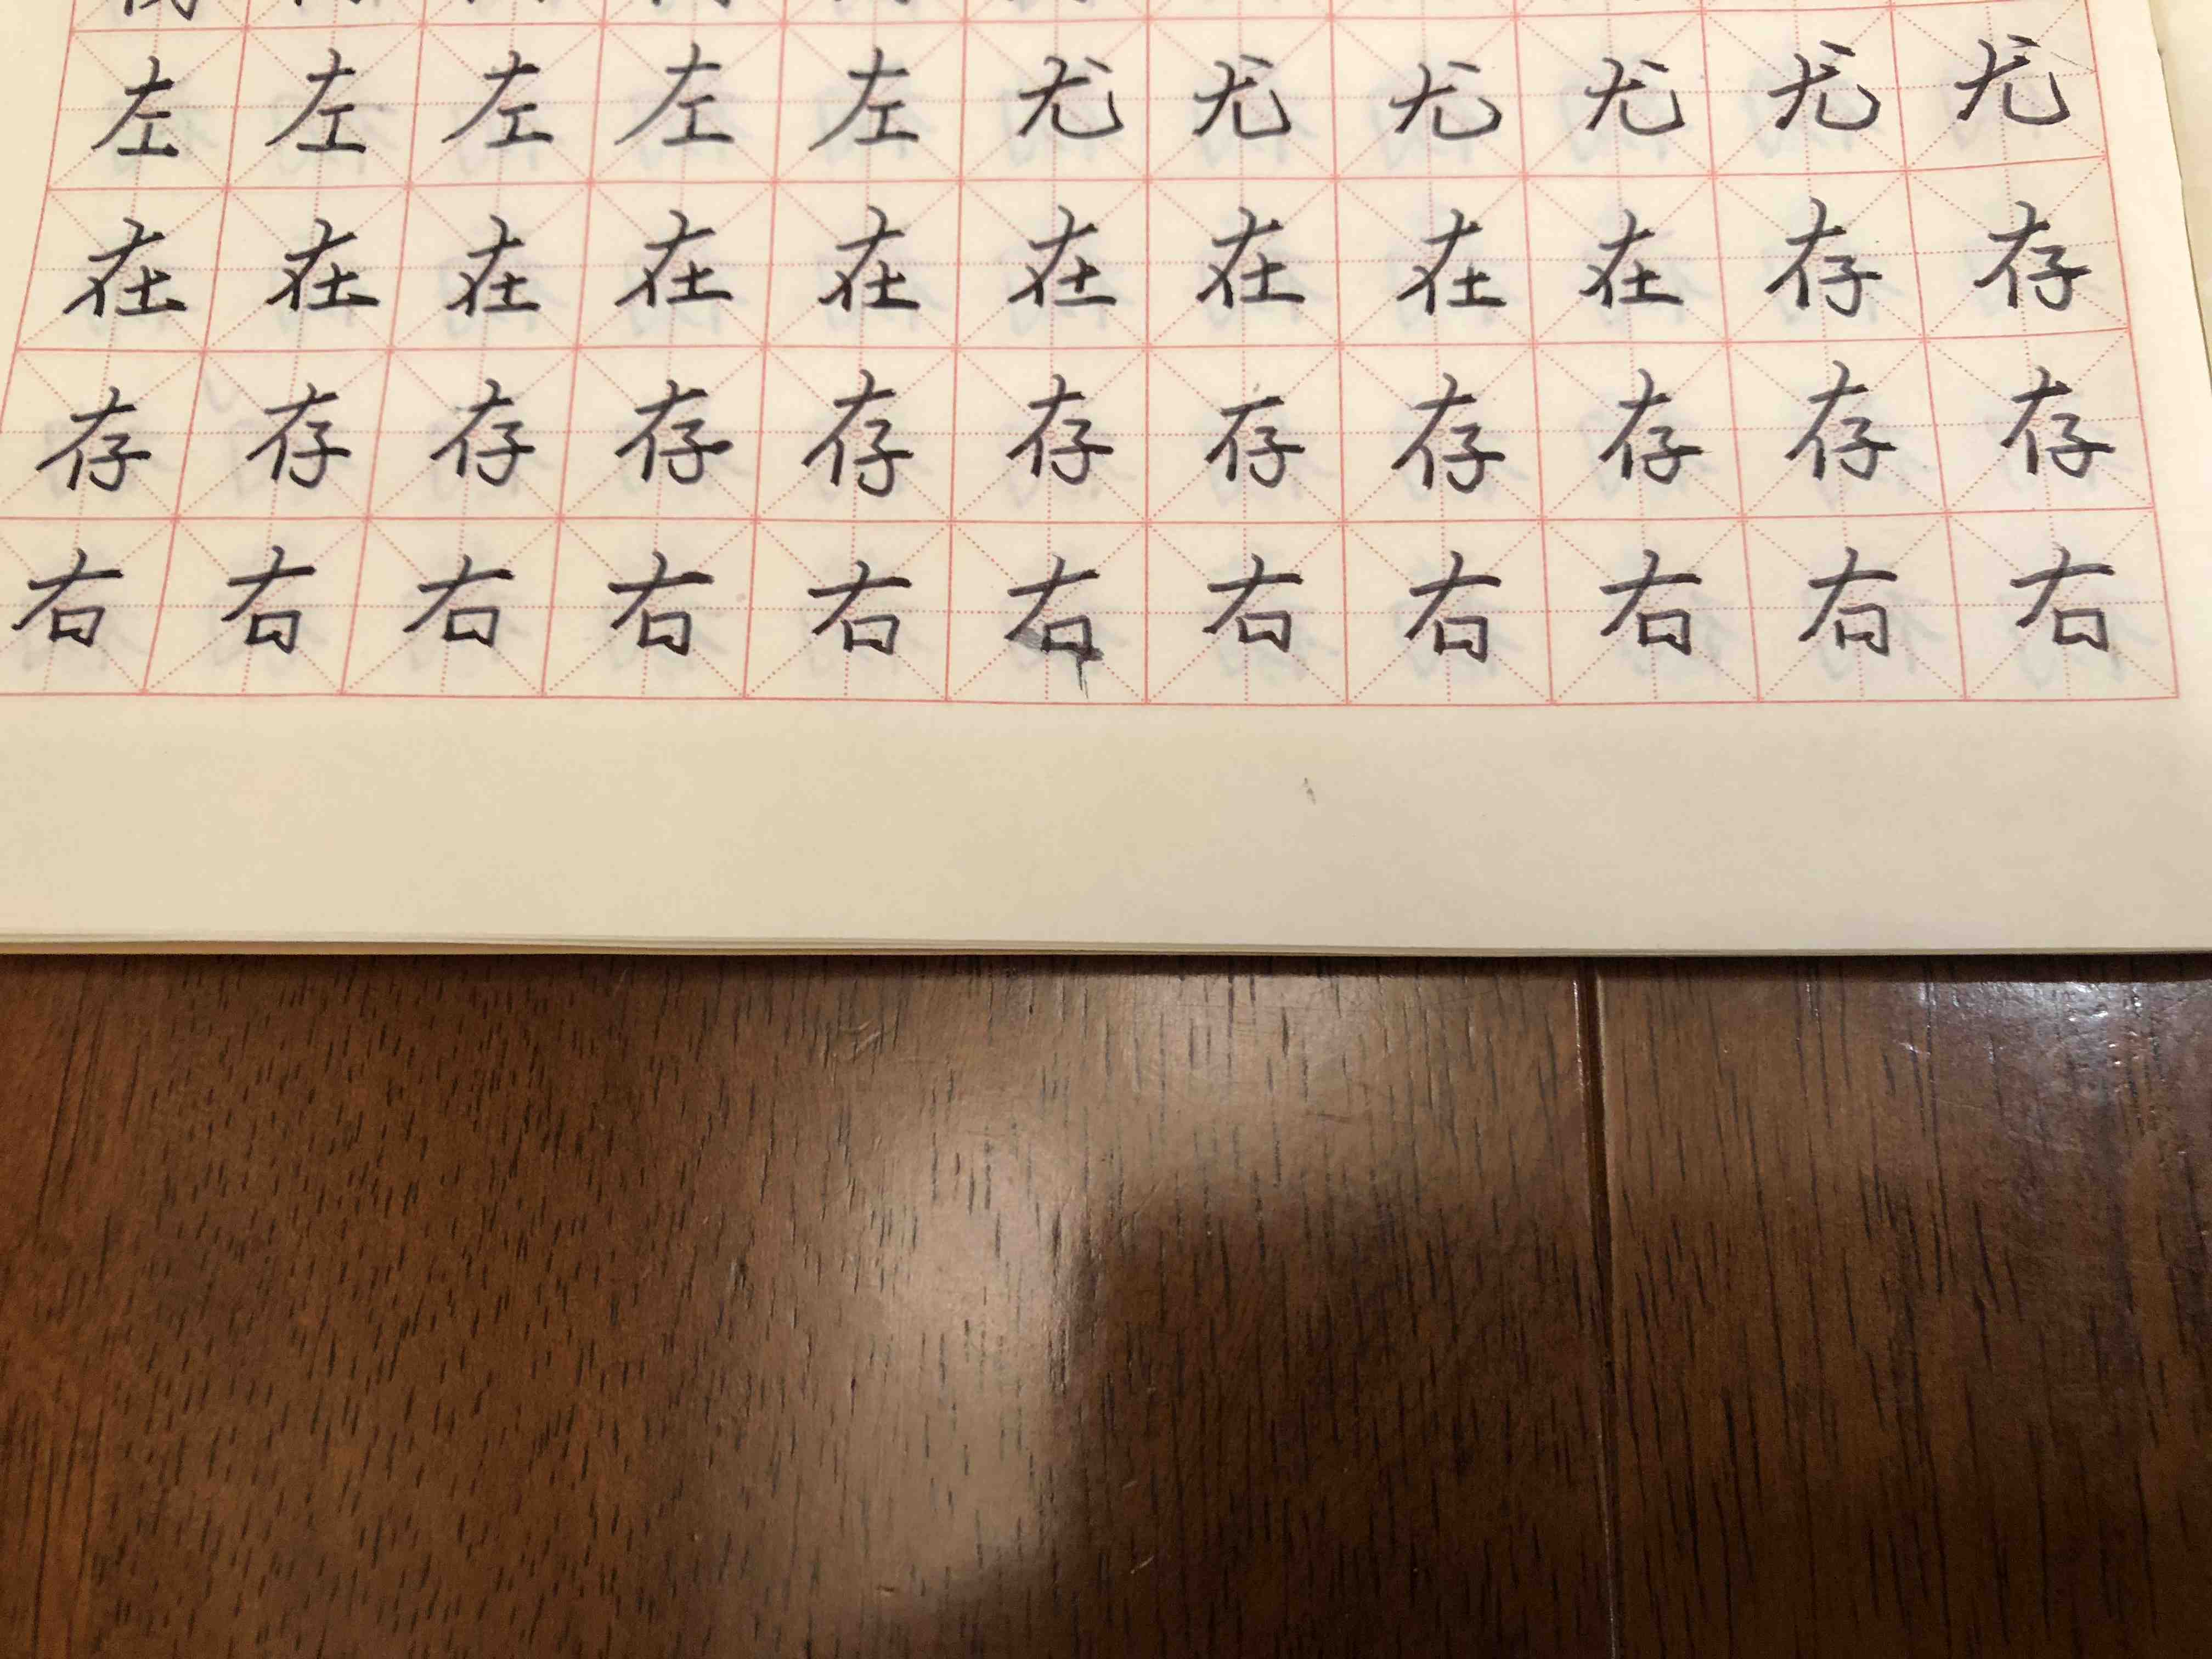 左左左左左尤尤尤尤尤尤
在在在在在在在在在存存
存存存存存存存存存存存
右右右右右右右右右右右